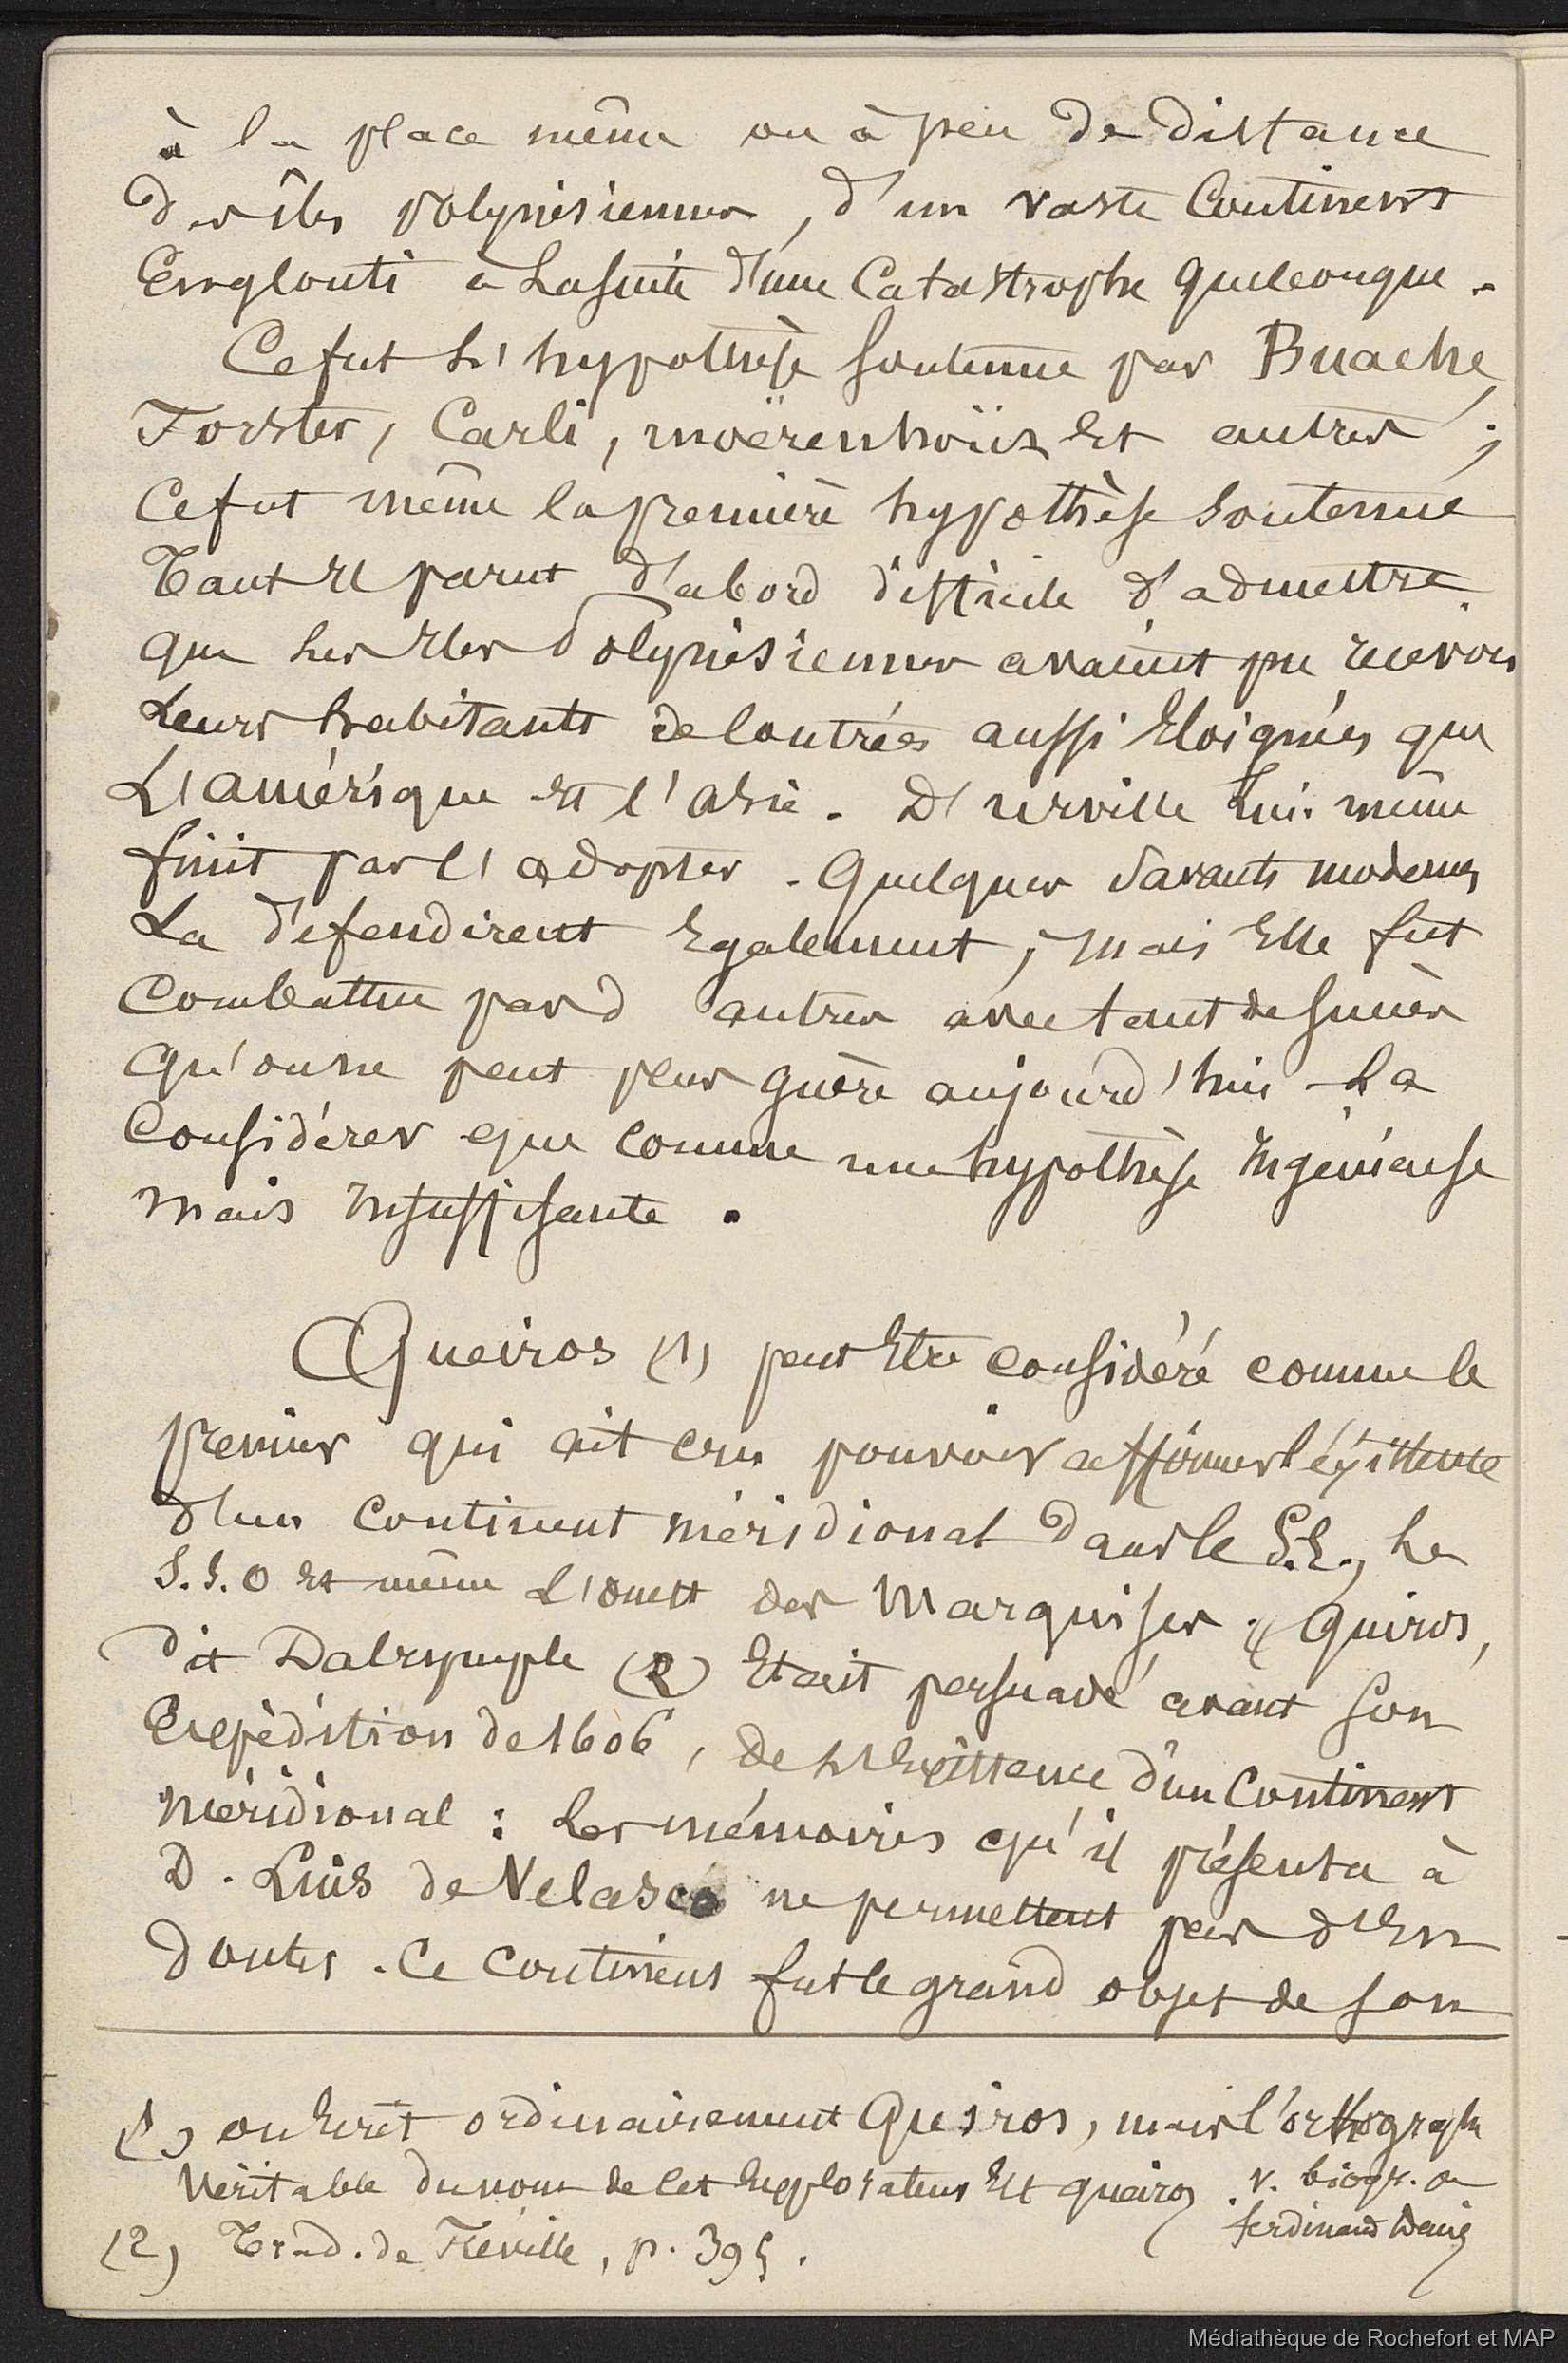 à la place même ou à peu de distance
des îles polynésiennes, d'un vaste Continent
Englouti à La suite d'une Catastrophe quelconque.
Ce fut L'hypothèse soutenue par Buache,
Forster, Carli, moërenhoüt Et autres ;
Ce fut même la première hypothèse soutenue
Tant Il parut d'abord difficile d'admettre
que Les Iles Polynésiennes avaient pu recevoir
Leurs habitants de Contrées aussi Eloignées que
L'amérique et l'asie. D'urville Lui-même
finit par l'adopter. Quelques Savants modernes
La défendirent Egalement, mais Elle fut
Combattue par d'autres avec tant de succès
qu'on ne peut plus guère aujourd'hui La
Considérer que comme une hypothèse Ingénieuse
mais Insuffisante.
Queiros (1) peut Etre considéré comme le
premier qui ait cru pouvoir affirmer l'éxistence
d'un continent méridional dans le S.E., Le
S.S.O et même L'ouest des Marquises. « Quiros,
dit Dalrymple (2) Etait persuadé avant son
Expédition de 1606, de L'Existence d'un Continent
méridional : Les mémoires qu'il présenta à
D. Luis de Velasco ne permettent pas d'En
douter. Ce Continent fut le grand objet de son
(1) on Ecrit ordinairement Quiros, mais l'orthographe
Véritable du nom de Cet Explorateur Est queiros. v. biogr. de
ferdinand Denis
(2) Trad. de Fréville, p. 395.